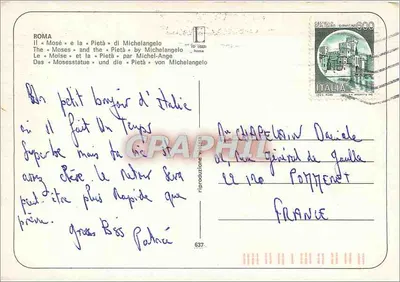 ROMA
Il « Mosé » e la « Pietà » di Michelangelo
The « Moses » and the « Pietà » by Michelangelo
Le « Moïse » et la « Pietà » par Michel-Ange
Das « Mosesstatue » und die « Pietà » von Michelangelo
600
ITALIA
Un petit bonjour d'Italie
où il fait un Temps
Superbe mais la vie si
assez chère le retour sera
peut-être plus rapide que
prévu.
Gross Biss Patrice
CHAPELAIN Daniele
rue Général de Gaulle
22120 POMMERET
FRANCE
CRAPHIL
riproduzione
637